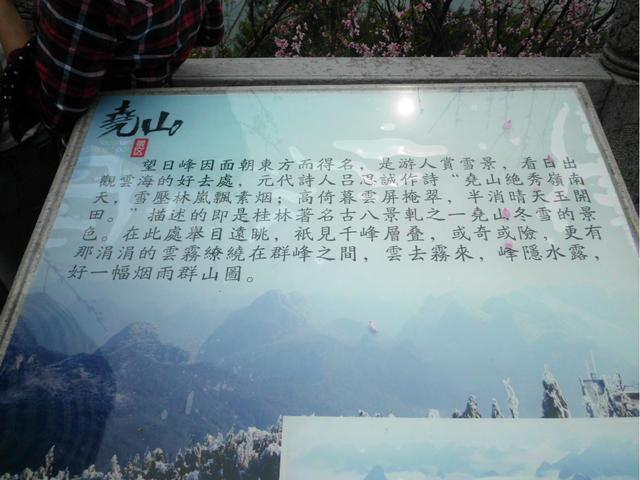 堯山
景区
望日峰因面朝東方而得名，是游人賞雪景，看日出
觀雲海的好去處，元代詩人吕思誠作詩“堯山绝秀嶺南
天，雪壓林嵐飄素烟；高倚暮雲屏掩翠，半消晴天玉開
田。”描述的即是桂林著名古八景軋之一堯山冬雪的景
色。在此處舉目遠眺，祇見千峰層叠，或奇或險，更有
那涓涓的雲霧繚繞在群峰之間，雲去霧來，峰隱水露，
好一幅烟雨群山圖。